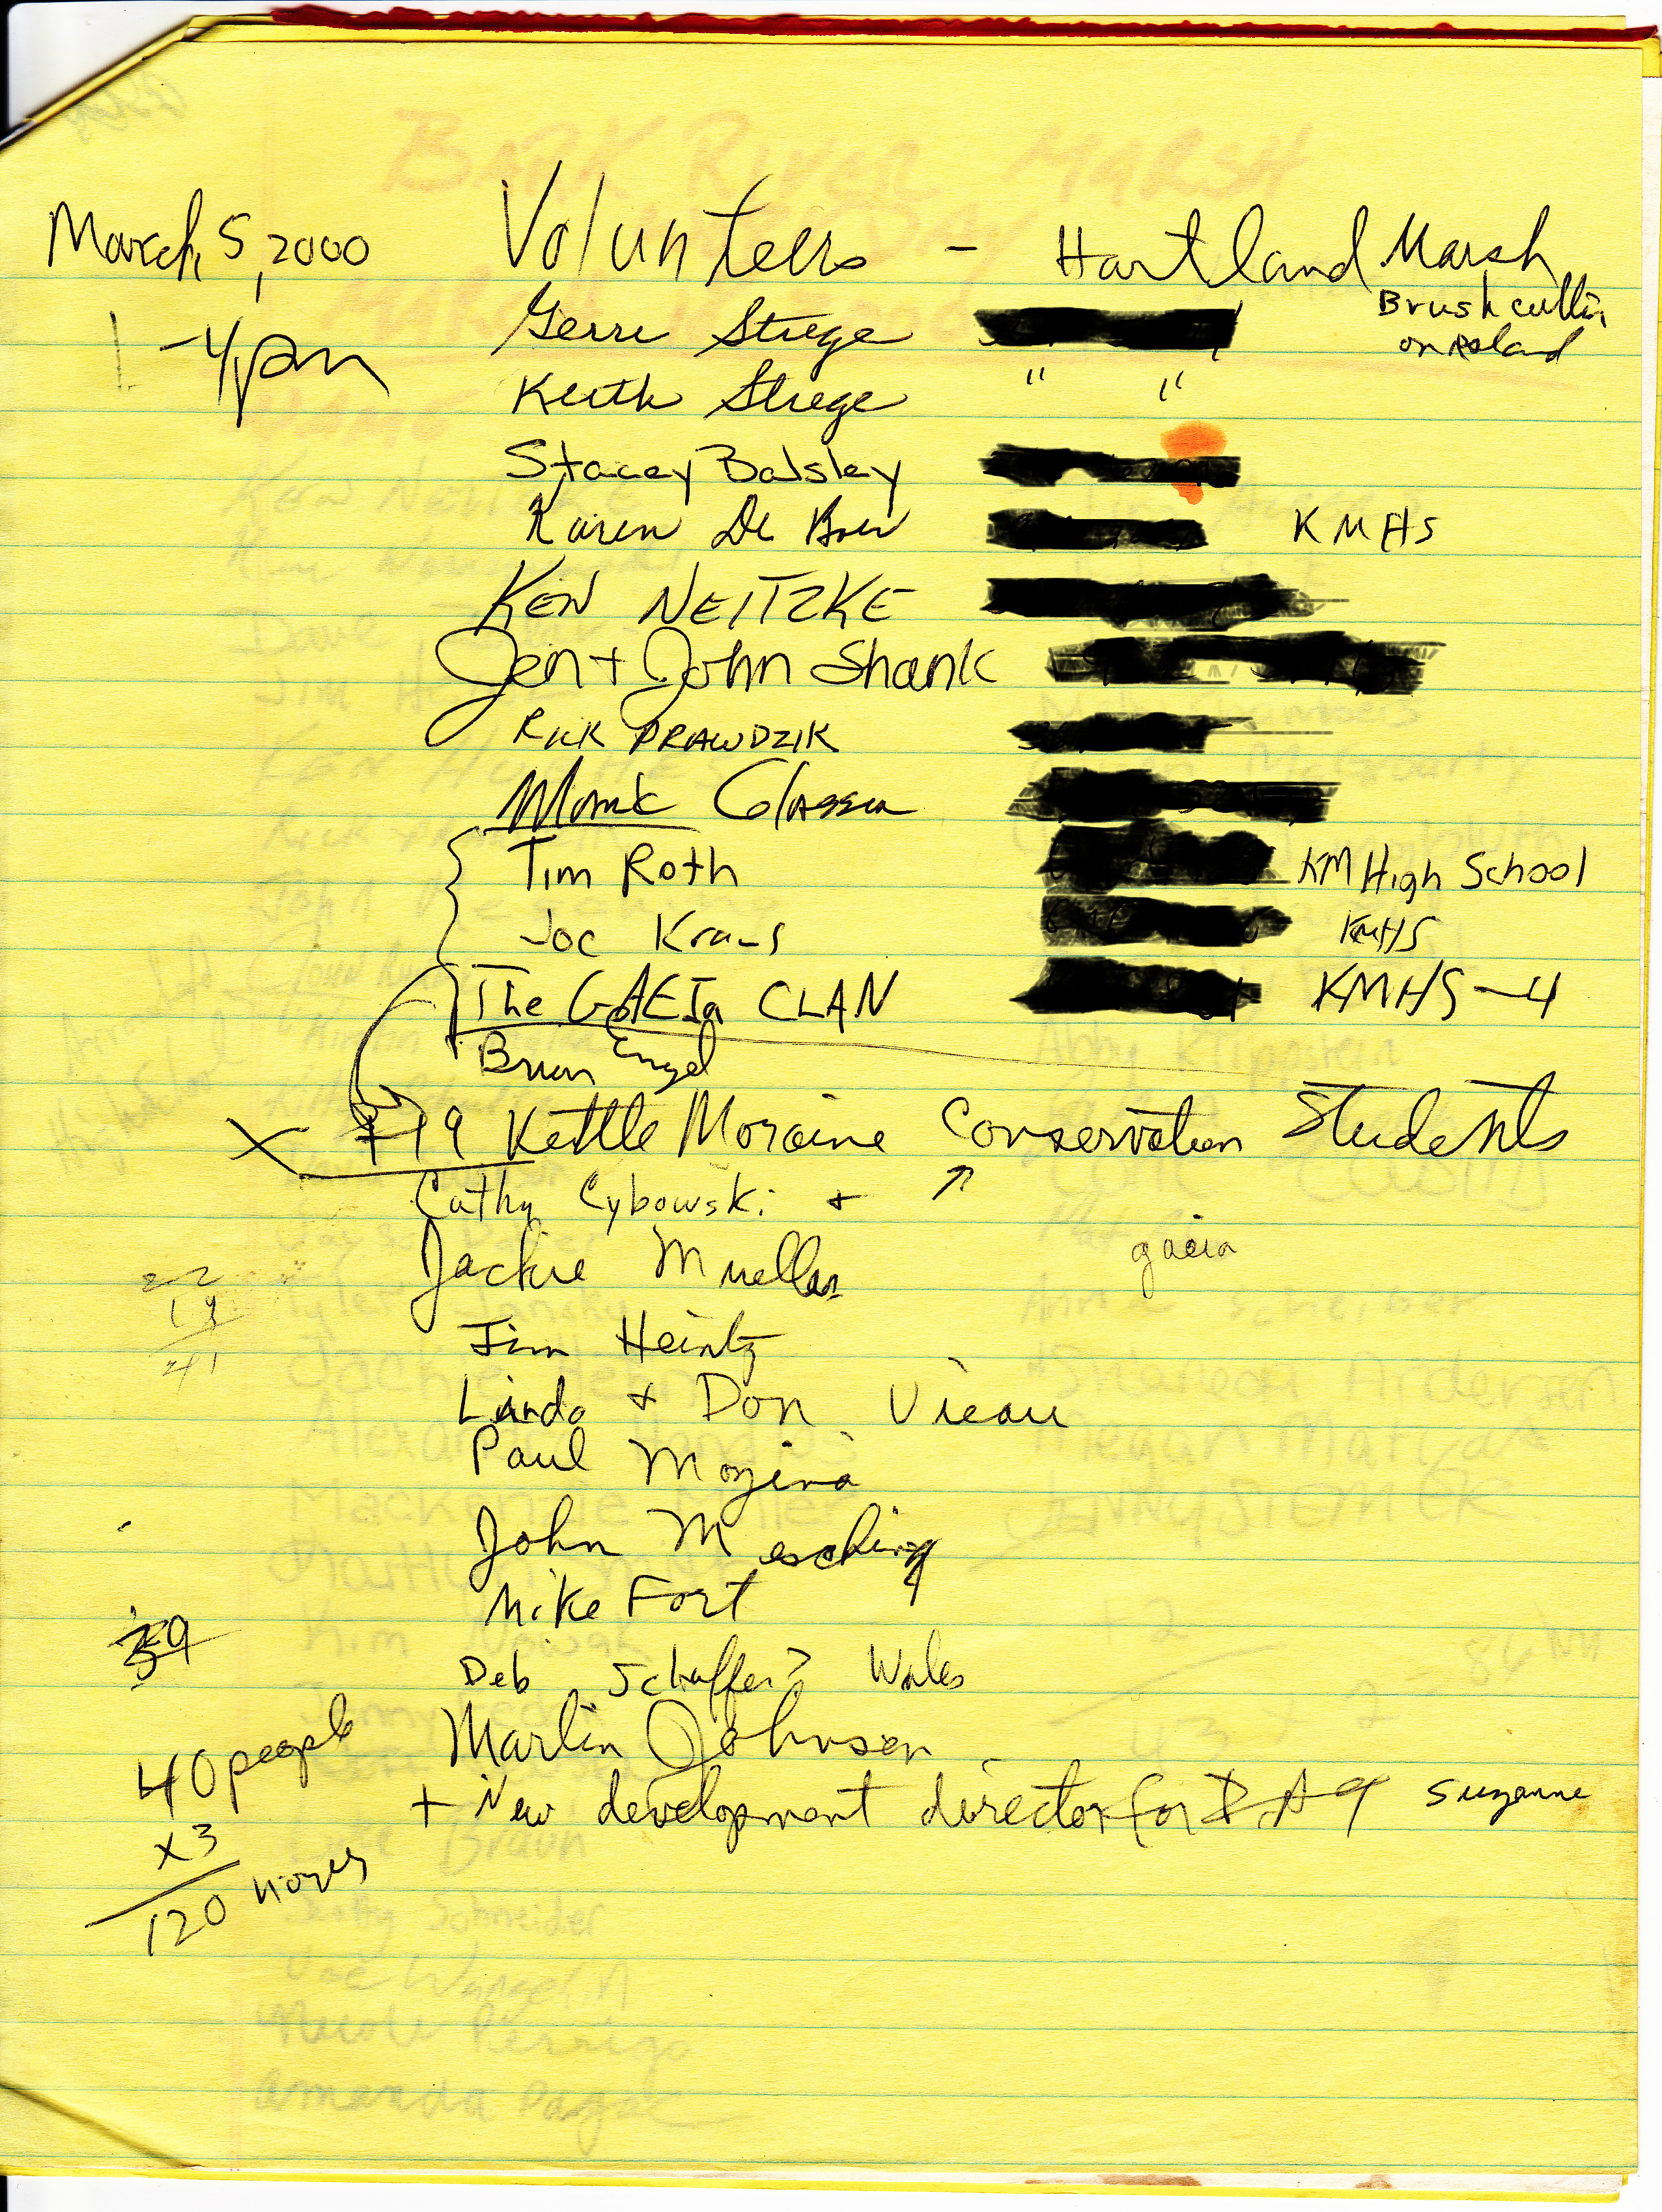 March 5, 2000 Volunteers - Hartland Marsh
1-4pm
Brush cuttin
on Island
Gerri Strege
Keith Strege " "
Stacey Balsley
Karen De Boer KMHS
KEN NEITZKE
Jen + John Shank
RICK PRAWDZIK
Tim Roth KM High School
Joe Kraus KMHS
The GAEIa CLAN KMHS-4
Brian Engel
X +19 Kettle Moraine Conservation Students
Cathy Cybowski +
gaeia
Jackie Mueller
22
19
41
Jim Heintz
Linda + Don Vieau
Paul Mozina
John Mesching
Mike Fort
39
Deb Schaffer? Wales
Marlin Johnson
40 people
+ New development director for Suzanne
x3
120 hours